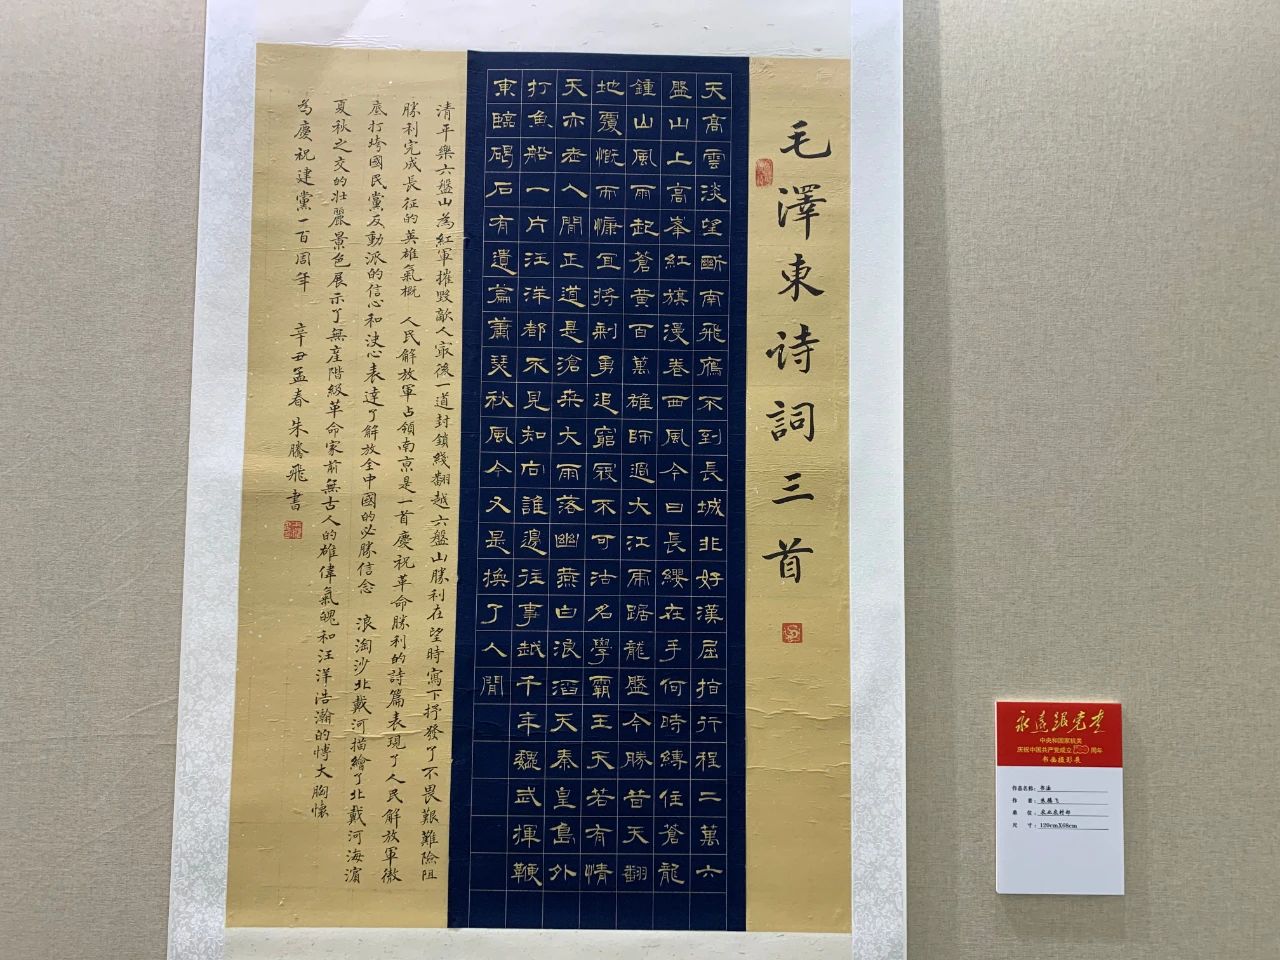 毛澤東诗詞三首
天高雲淡望斷南飛鴈不到長城非好漢屈指行程二萬六
盤山上高峯紅旗漫卷西風今日長纓在手何時縛住蒼龍
鍾山風雨起蒼黃百萬雄師過大江虎踞龍盤今勝昔天翻
地覆慨而慷宜將剩勇追窮寇不可沽名學霸王天若有情
天亦老人間正道是滄桑大雨落幽燕白浪滔天秦皇島外
打魚船一片汪洋都不見知向誰邊往事越千年魏武揮鞭
東臨碣石有遺篇蕭瑟秋風今又是換了人間
清平樂六盤山為紅軍摧毀敵人最後一道封鎖綫翻越六盤山勝利在望時寫下抒發了不畏艱難險阻
勝利完成長征的英雄氣概 人民解放軍占領南京是一首慶祝革命勝利的詩篇表現了人民解放軍徹
底打垮國民黨反動派的信心和決心表達了解放全中國的必勝信念 浪淘沙北戴河描繪了北戴河海濱
夏秋之交的壯麗景色展示了無産階級革命家前無古人的雄偉氣魄和汪洋浩瀚的博大胸懷
為慶祝建黨一百周年 辛丑孟春朱騰飛書
永远跟党走
中央和国家机关
庆祝中国共产党成立100周年
书画摄影展
作品名称：书法
作 者：朱腾飞
单 位：农业农村部
尺 寸：120cmX68cm